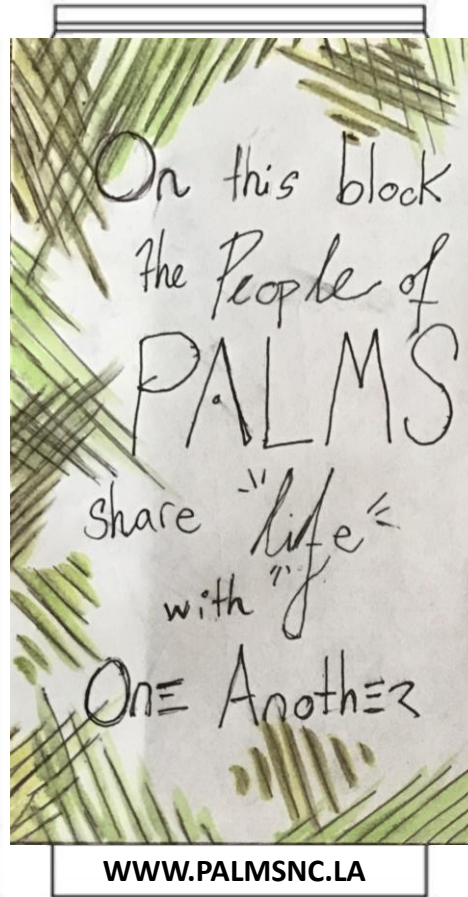 On this block
the People of
PALMS
share "life"
with
OnE AnothER
WWW.PALMSNC.LA